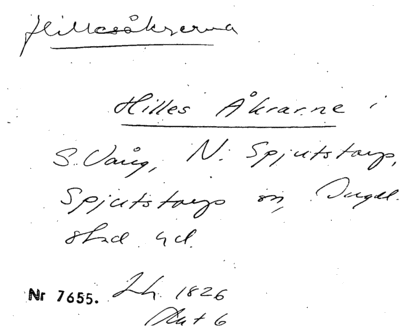 Hillesåkrarna
Hilles Åkrarne i
S. Vång, N. Spjutstorp,
Spjutstorp sn, Ingel-
stad hd.
Nr 7655. Lh. 1826
Akt 6